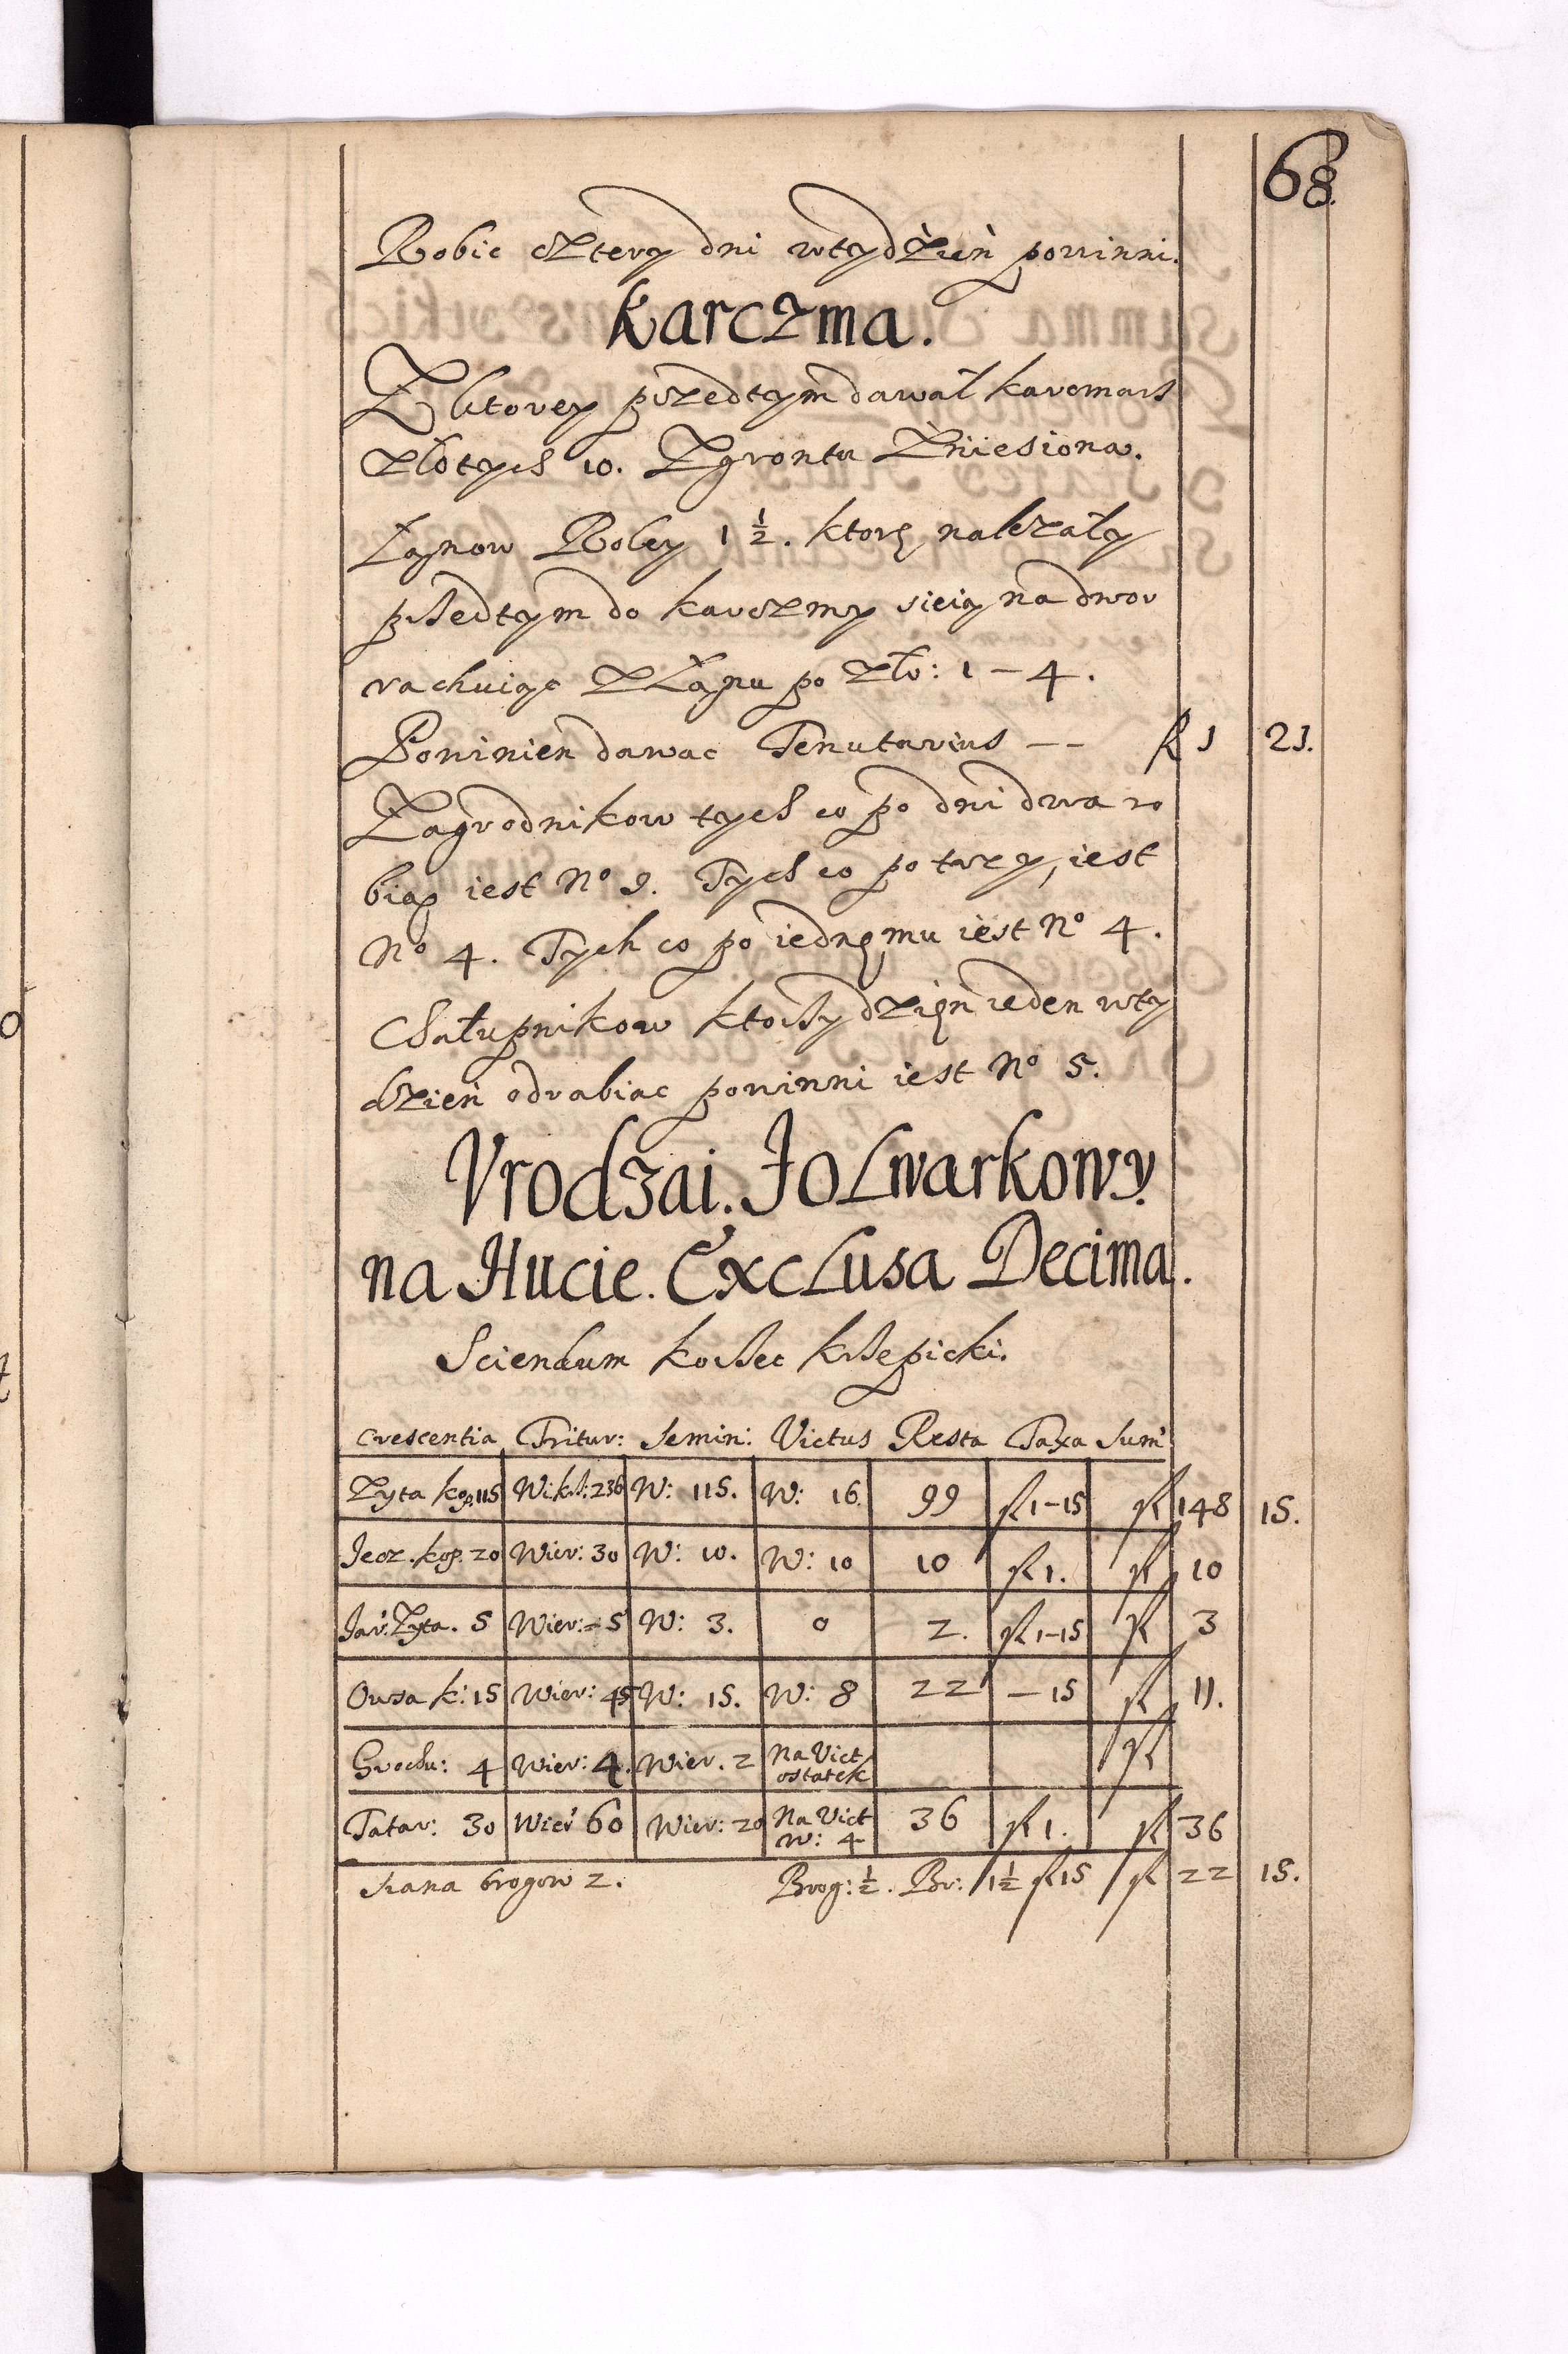 68.
Robic cztery dni wtydzień powinni.
Karczma.
Z ktorey przedtym dawał karcmarz
złotych 10. Zgrontu Zniesiona.
Łanow Roley 1 ½. ktorę nalezały
przedtym do karczmy sieią na dwor
rachuiąc z Łanu po zło: 1 – 4.
Powinien dawac Tenutarius – – fl 1 21.
Zagrodnikow tych co po dni dwa ro
bią iest No 9. Tych co po trzy, iest
No 4. Tych co po iednęmu iest No 4.
Chałupnikow ktorzy dzięn ieden wty
dzien odrabiac powinni iest No 5.
Vrodzai. Folwarkowy.
na Hucie. Exclusa Decima.
Sciendum korzec krzepicki.
Crescentia Tritur: Semin: Victus Resta Taxa Sum
Zyta kop 115 Wi krz: 236 W: 115. W: 16. 99 fl 1–15 fl 148 15.
Jecz. kop. 20 Wier: 30 W: 10. W: 10 10 fl 1. fl 10
Jar: Zyta. 5 Wier: 5 W: 3. 0 2. fl 1–15 fl 3
Owsa k: 15 Wier: 45 W: 15. W: 8 22 – 15 fl 11.
Grochu: 4 Wier: 4. Wier. 2 Na Vict ostatek fl
Tatar: 30 Wier 60 Wier: 20 Na Vict W: 4 36 fl 1. fl 36
Siana brogow 2. Brog: ½. Br: 1½ fl 15 fl 22 15.